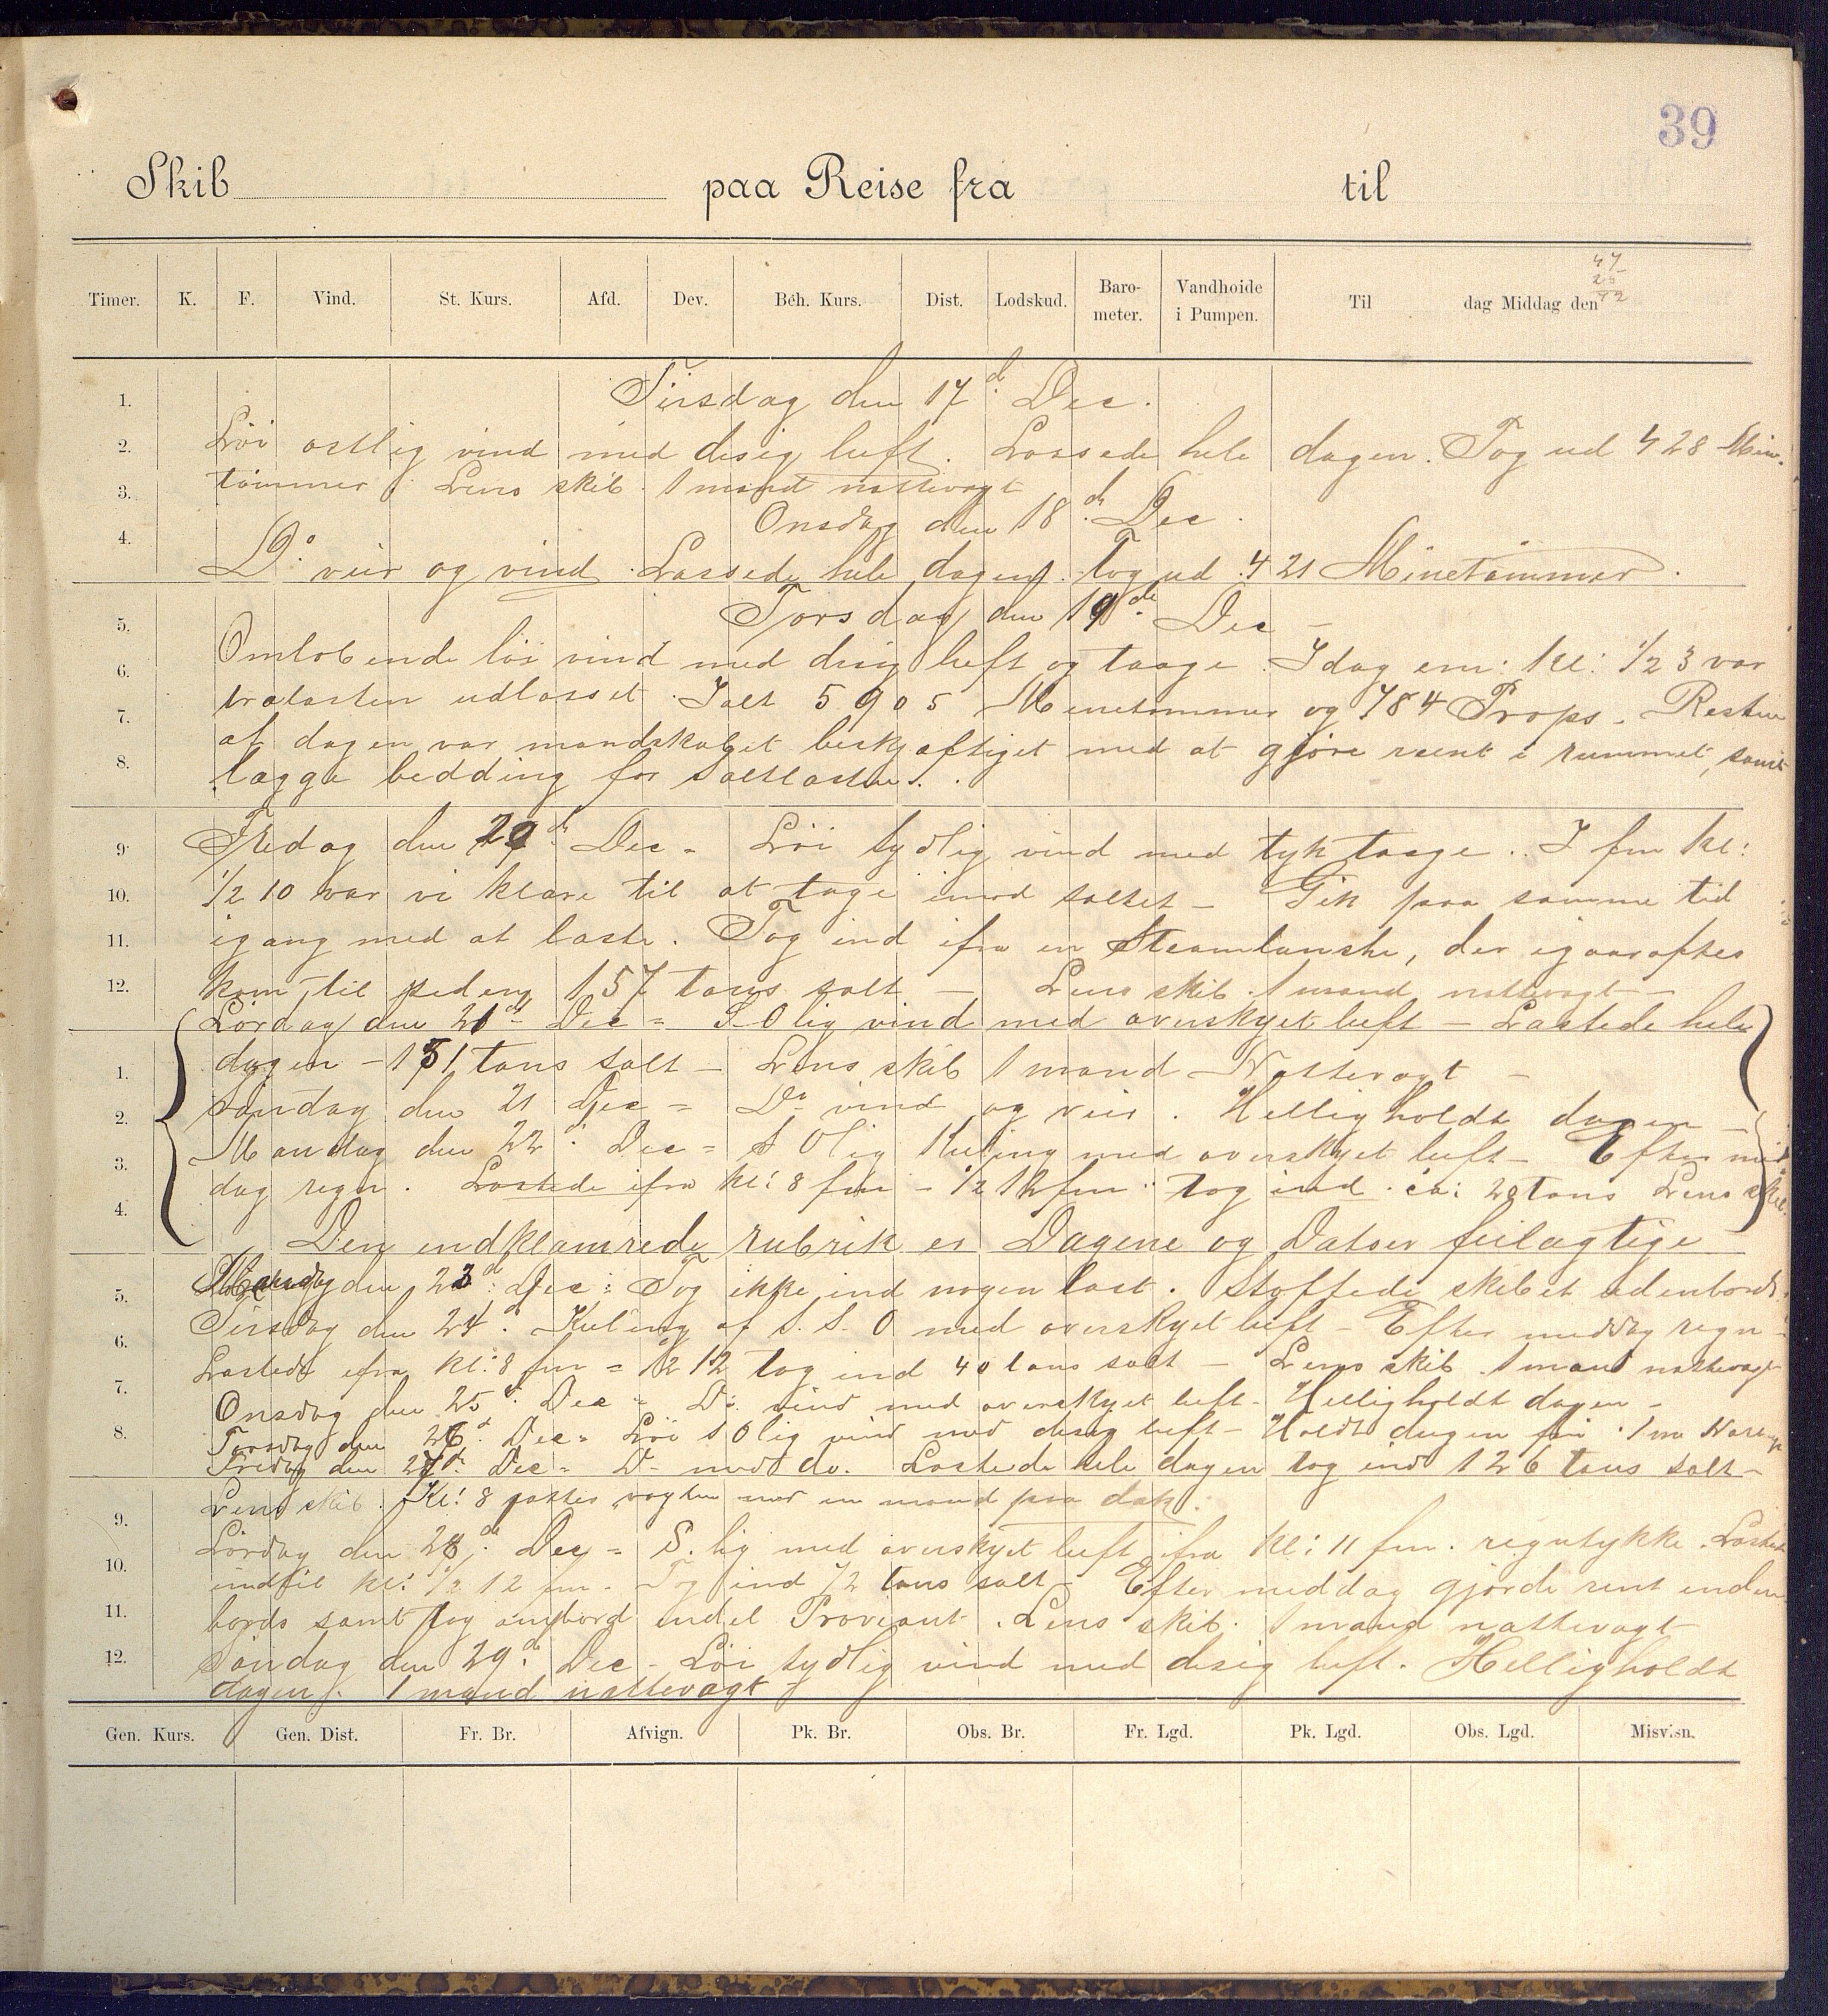 39
Skib paa Reise fra til
47
25
72
Timer. K. F. Vind. St. Kurs. Afd. Dev. Beh. Kurs. Dist. Lodskud. Baro-meter. Vandhoide i Pumpen. Til dag Middag den
1. Tirsdag den 17d Dec.
2. Löi ostlig vind med disig luft. Lossede hele dagen. Tog ud 428 Mine
3. tömmer. Lens skib. 1 mand nattevagt
Onsdag den 18d Dec.
4. Do veir og vind. Lossede hele dagen. Tog ud 421 Minetömmer.
5. Torsdag den 19de Dec –
6. Omlobende löi vind med disig luft og taage. Idag em: kl: 1/2 3 var
7. trælasten udlosset. Ialt 5905 Minetömmer og 784 Props. Resten
af dagen var mandskabet beskjæftiget med at gjöre reent i rummet, samt
8. lægge bedding for saltlasten.
9. Fredag den 20d Dec = Löi sydlig vind med tyk taage. I fm kl:
10. 1/2 10 var vi klare til at tage imod saltet – Gik paa samme tid
11. igang med at laste. Tog ind ifra en Steamlanske, der igaaraftes
12. kom til siden 157 tons salt – Lens skib. 1 mand nattevagt –
Lördag den 21d Dec = S.O lig vind med overskyet luft – Lastede hele
1. dagen – 151 tons salt – Lens skib 1 mand Nattevagt –
2. Söndag den 21 Dec = Do vind og veir. Helligholdt dagen –
3. Mandag den 22d Dec = S Olig Kuling med overskyet luft – Efter mid
4. dag regn. Lastede ifra kl: 8 fm – 1/2 12 fm: tog ind ca: 28 tons Lens skib.
Den indklamrede rubrik er Dagene og Datoer feilagtige
5. Mandag den 23d Dec: Tog ikke ind nogen last. Stoffede skibet udenbords
6. Tirsdag den 24d. Kuling af S.S.O med overskyet luft – Efter middag regn –
7. Lastede ifra kl: 8 fm = 1/2 12 tog ind 40 tons salt – Lens skib. 1 mand nattevagt
Onsdag den 25d Dec = Do: vind med overskyet luft – Helligholdt dagen –
8. Torsdag den 26d Dec = Löi S Olig vind med disig luft – Holdt dagen fri. 1 m
Fredag den 27d Dec = Do med do. Lastede hele dagen tog ind 126 tons salt –
9. Lens skib. Kl: 8 vagten med en mand paa dæk.
10. Lördag den 28de Dec = S. lig med overskyet luft, ifra kl: 11 fm. regntykke. Lastede
indtil kl: 1/2 12 fm. Tog ind 72 tons salt – Efter middag gjorde rent inden
11. bords samt tog ombord endel Proviant. Lens skib. 1 mand nattevagt
12. Söndag den 29de Dec – Löi sydlig vind med disig luft. Helligholdt
dagen. 1 mand nattevagt –
Gen. Kurs. Gen. Dist. Fr. Br. Afvign. Pk. Br. Obs. Br. Fr. Lgd. Pk. Lgd. Obs. Lgd. Misvisn.